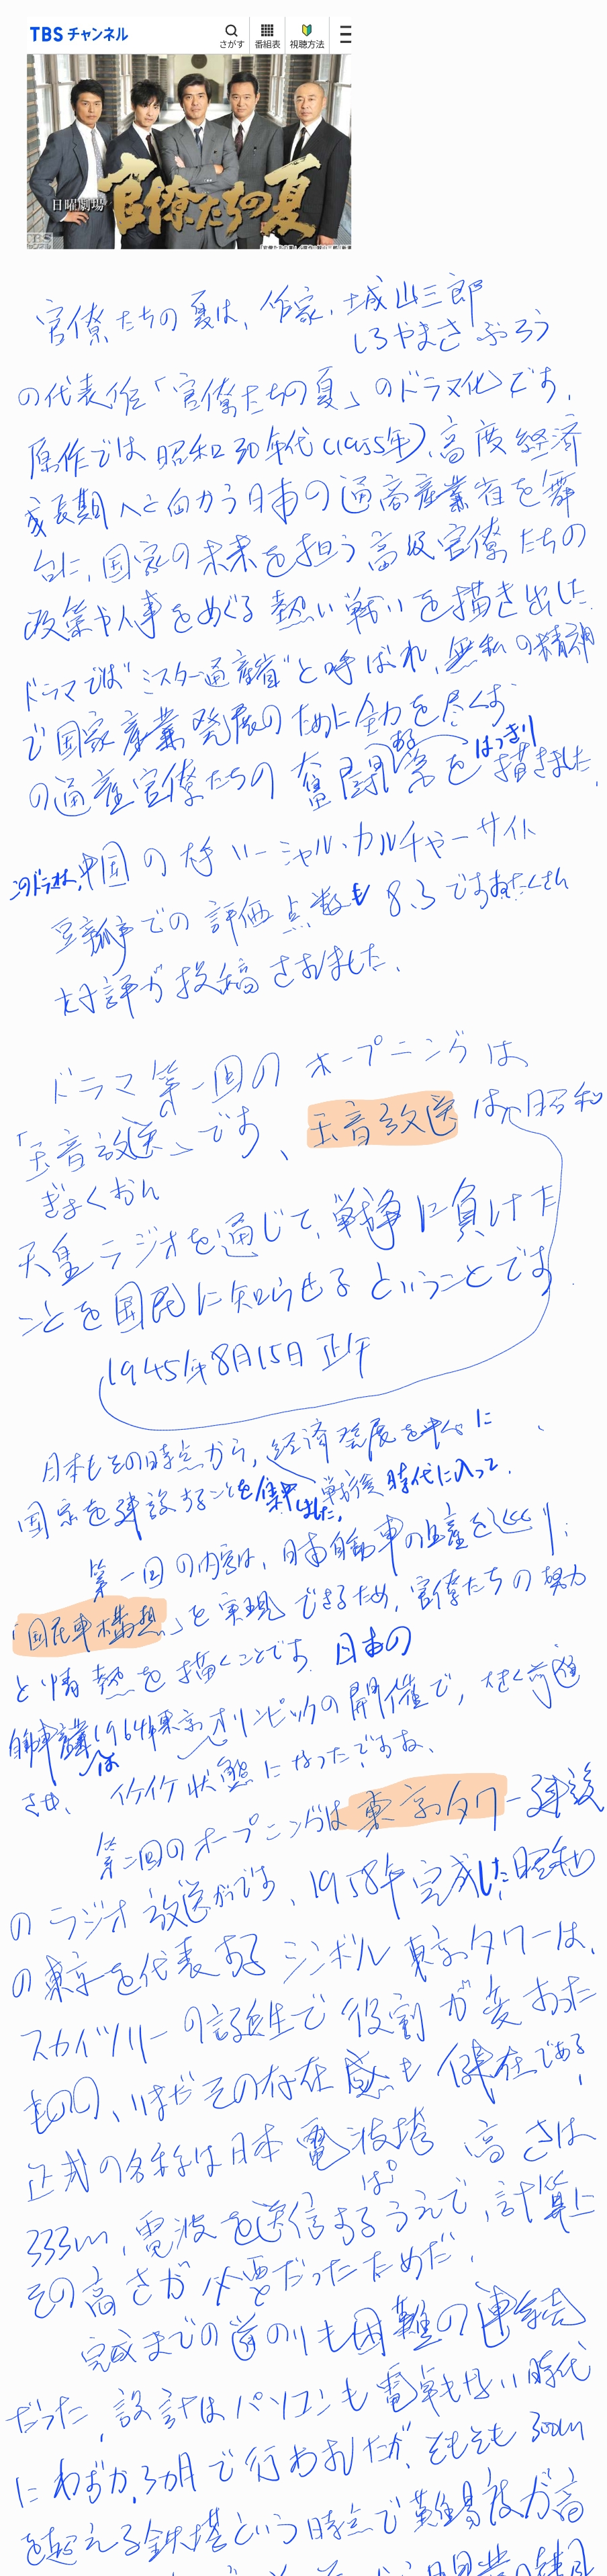 TBS チャンネル
さがす 番組表 視聴方法
日曜劇場 官僚たちの夏
官僚たちの夏は、作家、城山三郎
しろやまさぶろう
の代表作「官僚たちの夏」のドラマ化です。
原作では昭和30年代(1955年)、高度経済
成長期へと向かう日本の通商産業省を舞
台に、国家の未来を担う高級官僚たちの
政策や人事をめぐる熱い戦いを描き出した。
ドラマでは"ミスター通産省"と呼ばれ、無私の精神
で国家産業発展のために全力を尽くす
の通産官僚たちの奮闘 を はっきり 描きました。
このドラマは、中国の大手ソーシャル・カルチャーサイト
豆瓣での評価点数も8.3です またたくさん
好評が投稿されました。
ドラマ第一回のオープニングは
「玉音放送」です、玉音放送は、昭和
ぎょくおん
天皇ラジオを通じて、戦争に負けた
ことを国民に知らせるということです。
1945年8月15日 正午
日本もその時点から、経済発展を中心に
国家を建設することを集中しました。戦後時代に入って、
第一回の内容は、日本自動車の生産を巡り、
「国民車構想」を実現できるため、官僚たちの努力
と情熱を描くことです。日本の
自動車産業は1964年東京オリンピックの開催で、大きく前進
させ、イケイケ状態になったですね、
第二回のオープニングは東京タワー建設
のラジオ放送がです、1958年完成した昭和
の東京を代表するシンボル東京タワーは、
スカイツリーの誕生で役割が変わった
ものの、いまだその存在感も健在である。
正式の名称は日本電波塔 高さは
ぱ
333m、電波を送信するうえで、計算上
その高さが必要だったためだ。
完成までの道のりも困難の連続
だった、設計はパソコンも電卓もない時代
にわずか、3カ月で行われたが、そもそも300m
を超える鉄塔という時点で難易度が高